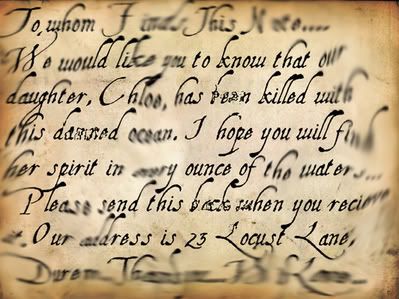 To, whom Finds This Note....
We would like you to know that our
daughter, Chloe, has been killed with
this damned ocean. I hope you will find
her spirit in every ounce of the waters...
Please send this back when you recieve
it. Our address is 23 Locust Lane,